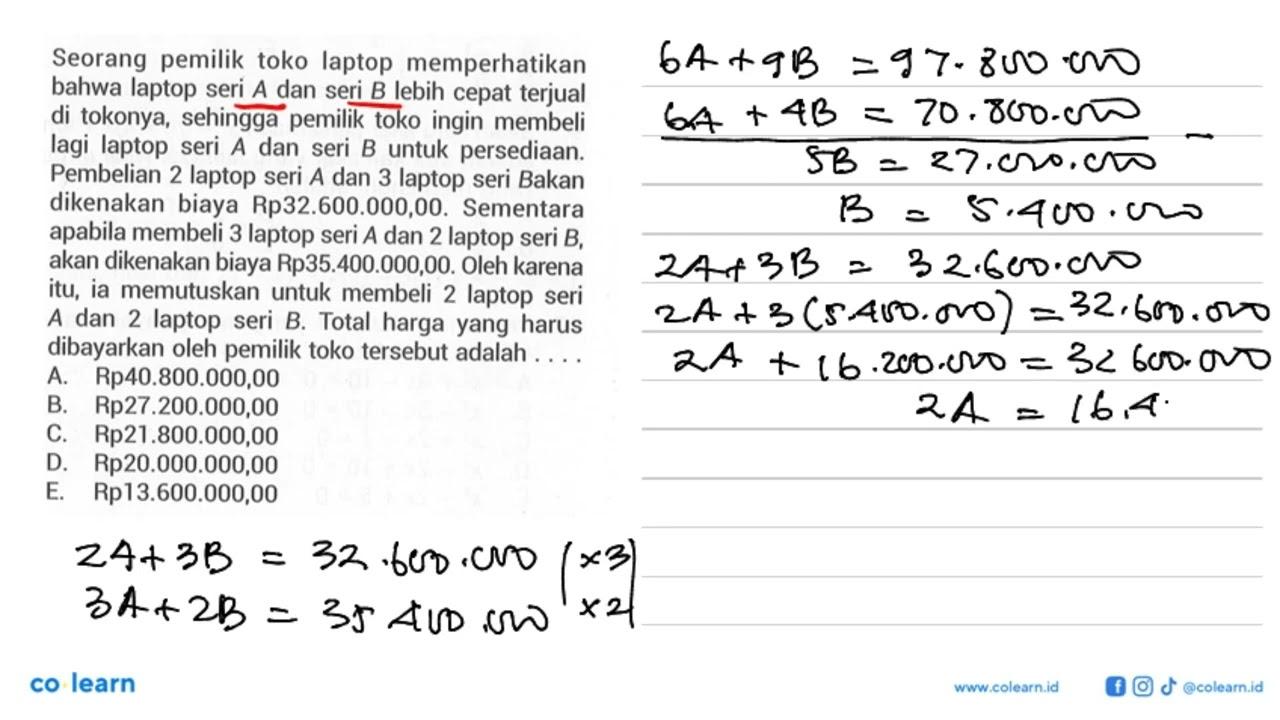 Seorang pemilik toko laptop memperhatikan
bahwa laptop seri A dan seri B lebih cepat terjual
di tokonya, sehingga pemilik toko ingin membeli
lagi laptop seri A dan seri B untuk persediaan.
Pembelian 2 laptop seri A dan 3 laptop seri Bakan
dikenakan biaya Rp32.600.000,00. Sementara
apabila membeli 3 laptop seri A dan 2 laptop seri B,
akan dikenakan biaya Rp35.400.000,00. Oleh karena
itu, ia memutuskan untuk membeli 2 laptop seri
A dan 2 laptop seri B. Total harga yang harus
dibayarkan oleh pemilik toko tersebut adalah . . . .
A. Rp40.800.000,00
B. Rp27.200.000,00
C. Rp21.800.000,00
D. Rp20.000.000,00
E. Rp13.600.000,00
2A + 3B = 32.600.000 | ×3 |
3A + 2B = 35 400.000 | ×2 |
6A + 9B = 97.800.000
6A + 4B = 70.800.000 -
5B = 27.000.000
B = 5.400.000
2A + 3B = 32.600.000
2A + 3 (5.400.000) = 32.600.000
2A + 16.200.000 = 32 600.000
2A = 16.4.
co learn
www.colearn.id
@colearn.id